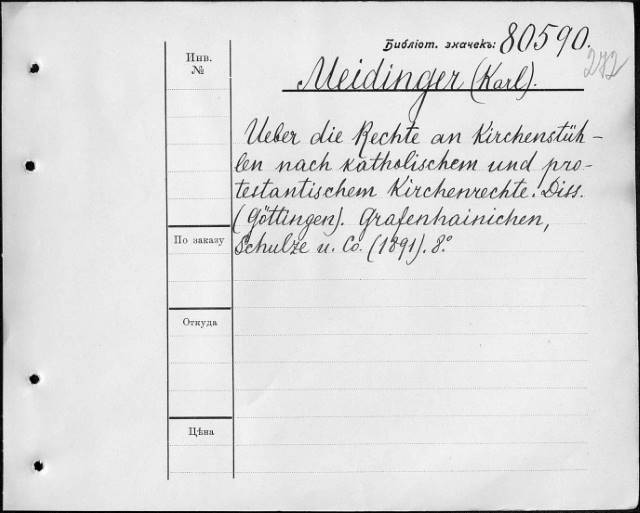 Библіот. значекъ: 80590.
272
Инв.
№
Meidinger (Karl).
Ueber die Rechte an Kirchenstüh-
len nach katholischem und pro-
testantischem Kirchenrechte. Diss.
(Göttingen). Grafenhainichen,
Schulze u. Co. (1891). 8°.
По заказу
Откуда
Цѣна